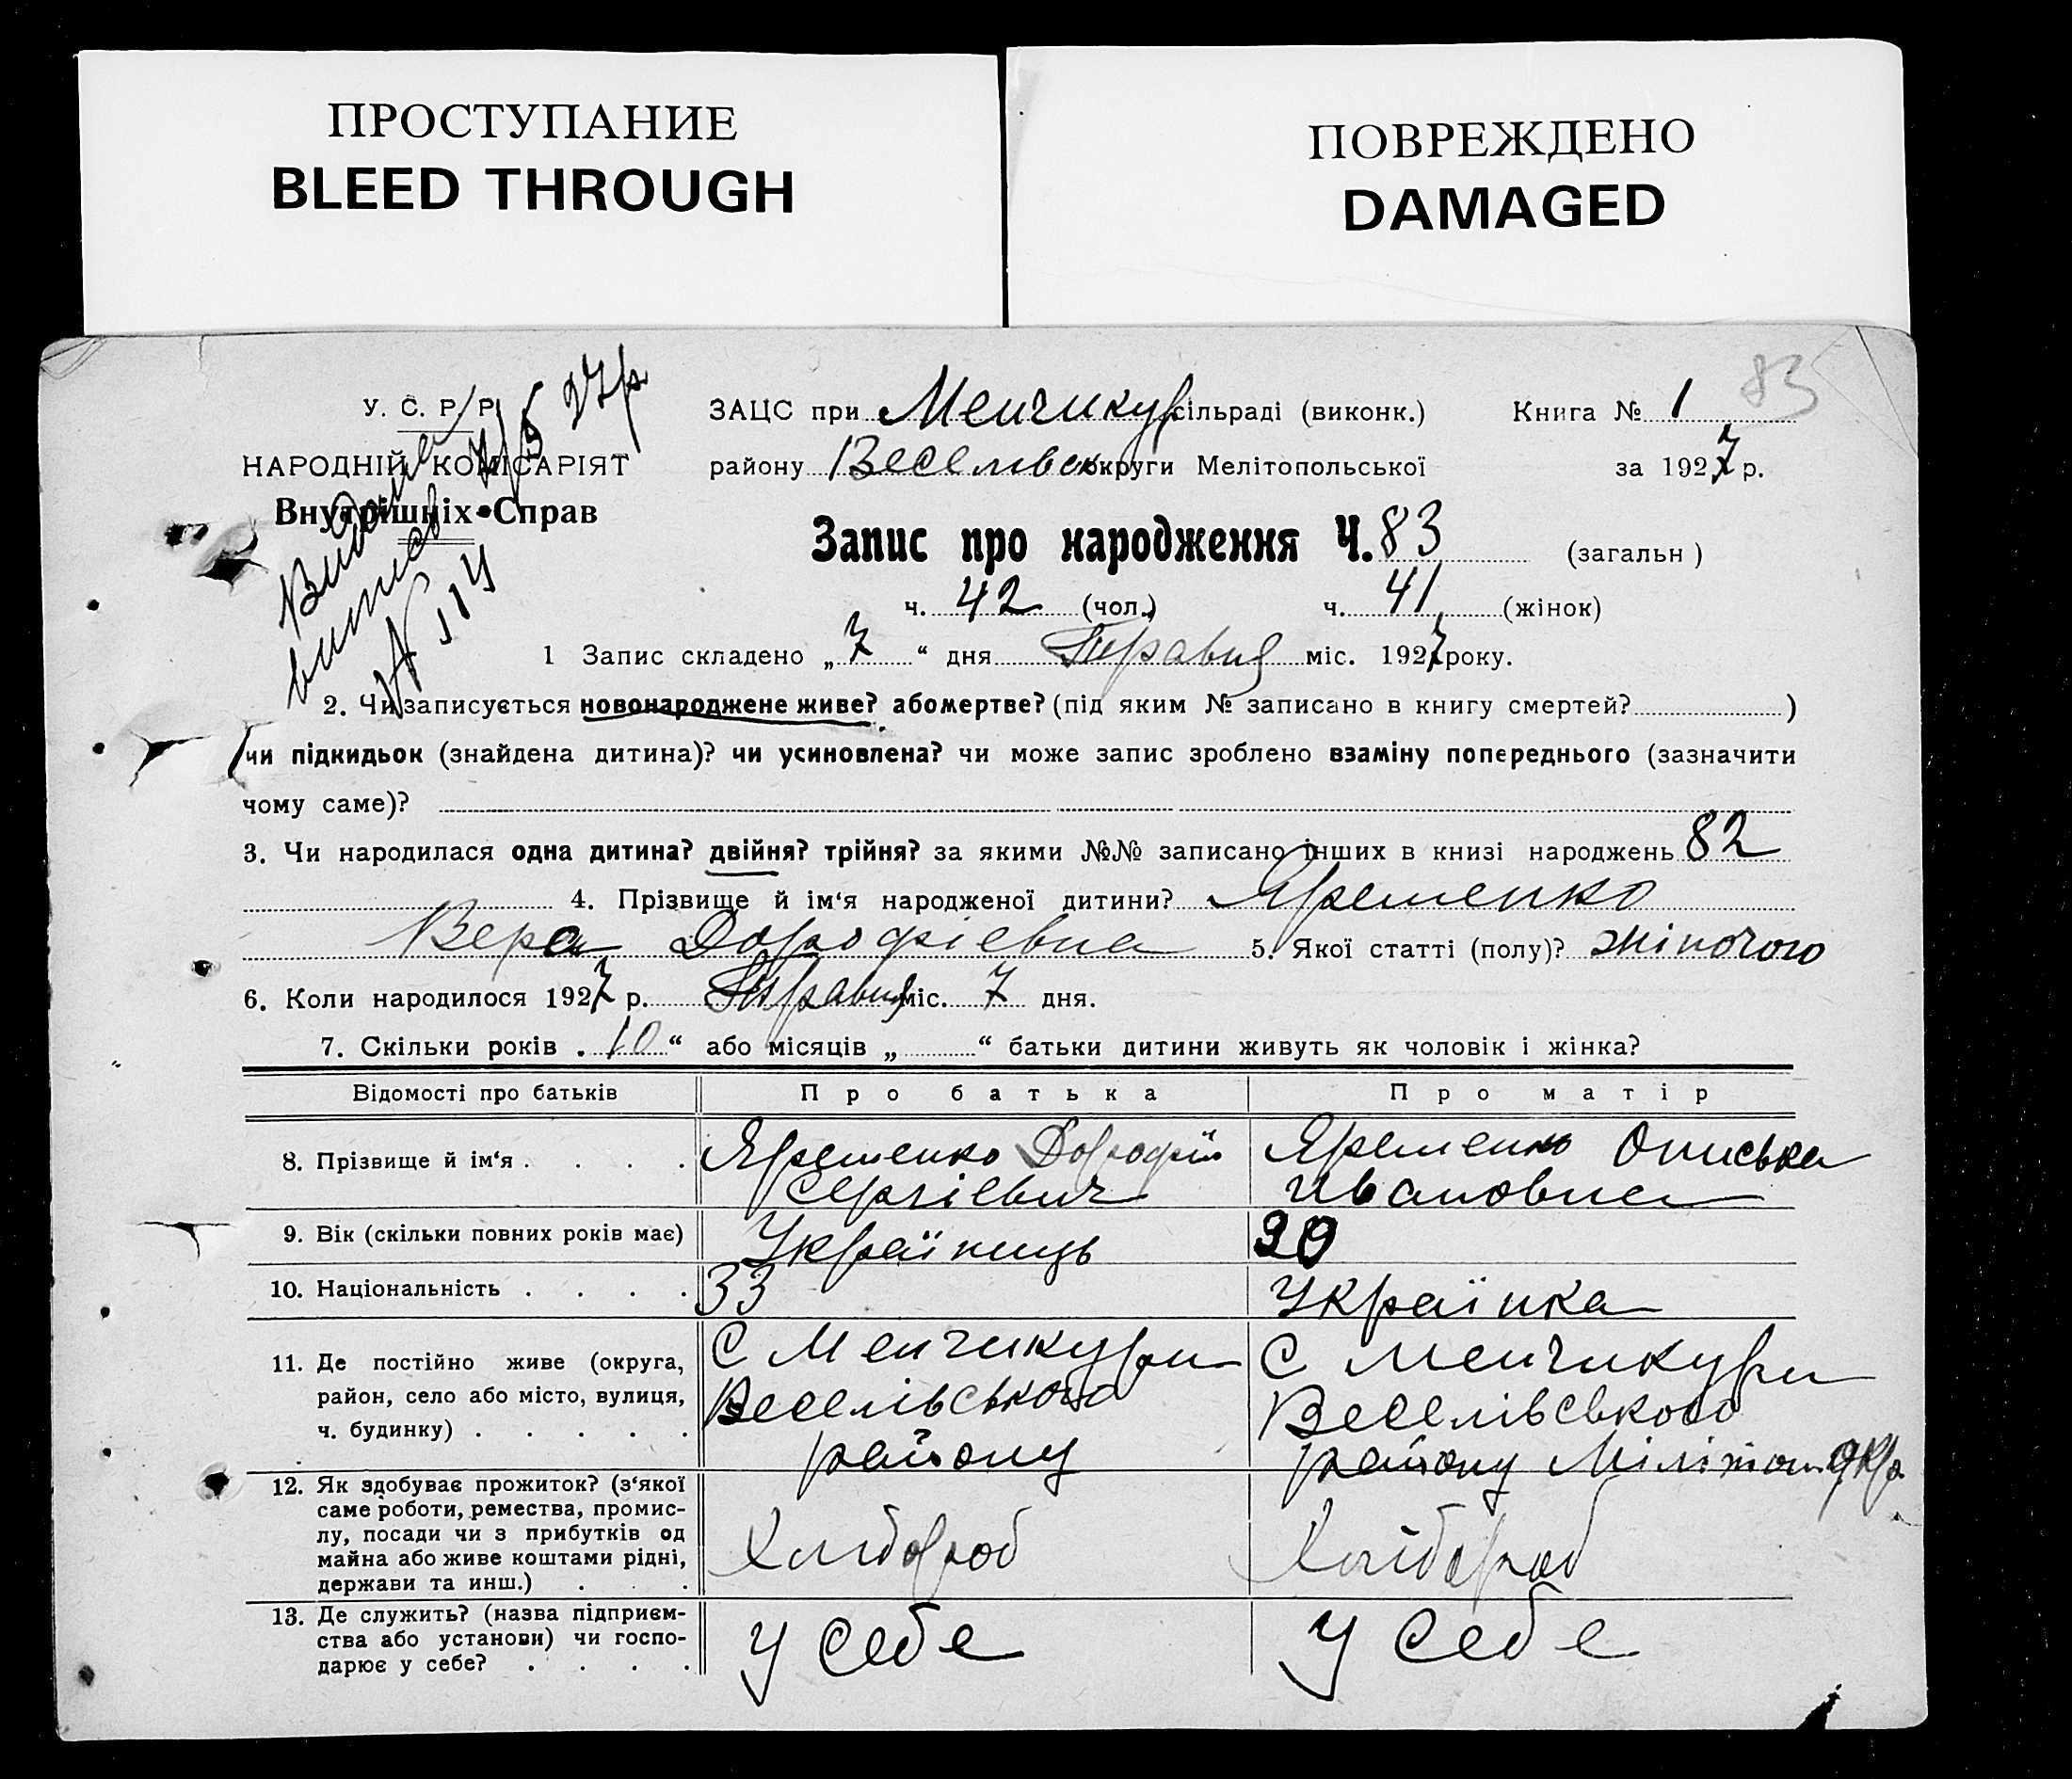 ПРОСТУПАНИЕ
BLEED THROUGH
ПОВРЕЖДЕНО
DAMAGED
83
У. С. Р. Р.
НАРОДНІЙ КОМІСАРІЯТ
Внутрішніх Справ
Видане
випись
N 114
7/5 27р
ЗАЦС при Менчикур сільраді (виконк.) Книга № 1
району Веселівськ округи Мелітопольської за 1927 р.
Запис про народження Ч. 83 (загальн)
ч. 42 (чол.) ч. 41 (жінок)
1 Запис складено „ 7 “ дня Травня міс. 1927 року.
2. Чи записується новонароджене живе? або мертве? (під яким № записано в книгу смертей? )
чи підкидьок (знайдена дитина)? чи усиновлена? чи може запис зроблено взаміну попереднього (зазначити
чому саме)?
3. Чи народилася одна дитина? двійня? трійня? за якими №№ записано інших в книзі народжень 82
4. Прізвище й ім‘я народженої дитини? Яременко
Вера Дорофієвна 5. Якої статті (полу)? жіночого
6. Коли народилося 1927 р. Травня міс. 7 дня.
7. Скільки років . 10 “ або місяців „ “ батьки дитини живуть як чоловік і жінка?
Відомості про батьків Про батька Про матір
8. Прізвище й ім‘я . . . . Яременко Дорофій Яременко Ониська
Сергієвич Ивановна
9. Вік (скільки повних років має) Українць 30
10. Національність . . . . 33 Українка
11. Де постійно живе (округа, С Менчикури С Менчикури
район, село або місто, вулиця, Веселівського Веселівського
ч. будинку) . . . . . району району Мілітоп. окр.
12. Як здобуває прожиток? (з‘якої
саме роботи, ремества, промис-
лу, посади чи з прибутків од Хлібороб Хлібороб
майна або живе коштами рідні,
держави та инш.) . . .
13. Де служить? (назва підприєм-
ства або установи) чи госпо- У себе У себе
дарює у себе? . . . .